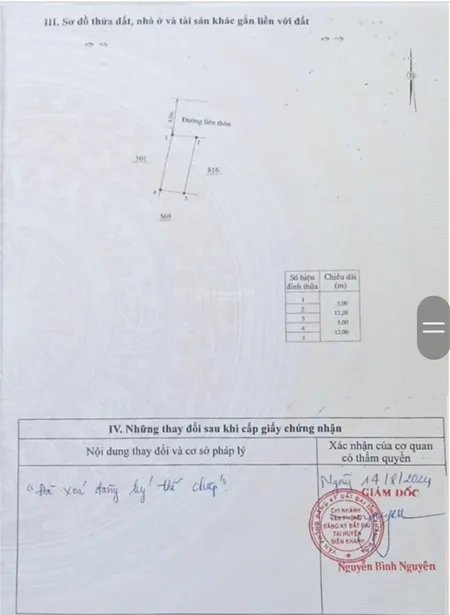 III. Sơ đồ thửa đất, nhà ở và tài sản khác gắn liền với đất
Đường liên thôn
1
2
501
816
4
3
569
Số hiệu đỉnh thửa
Chiều dài (m)
1
5,00
2
12,20
3
5,00
4
12,00
1
IV. Những thay đổi sau khi cấp giấy chứng nhận
Nội dung thay đổi và cơ sở pháp lý
Xác nhận của cơ quan
có thẩm quyền
"Đã xoá đăng ký thế chấp".
Ngày 14/8/2024
GIÁM ĐỐC
CHI NHÁNH
VĂN PHÒNG
ĐĂNG KÝ ĐẤT ĐAI
TẠI HUYỆN
DIÊN KHÁNH
Nguyễn Bình Nguyên